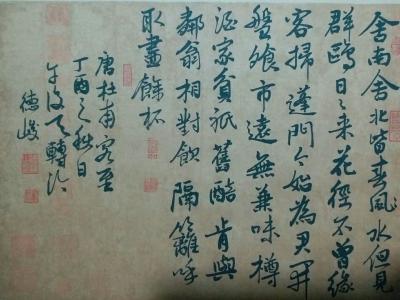 舍南舍北皆春風水但見
群鷗日〻来花徑不曾緣
客掃蓬門今始為君開
盤飧市遠無兼味樽
酒家貧祇舊醅肯與
鄰翁相對飲隔籬呼
取盡餘杯
唐杜甫客至
丁酉之秋日
午後天轉涼
德峻